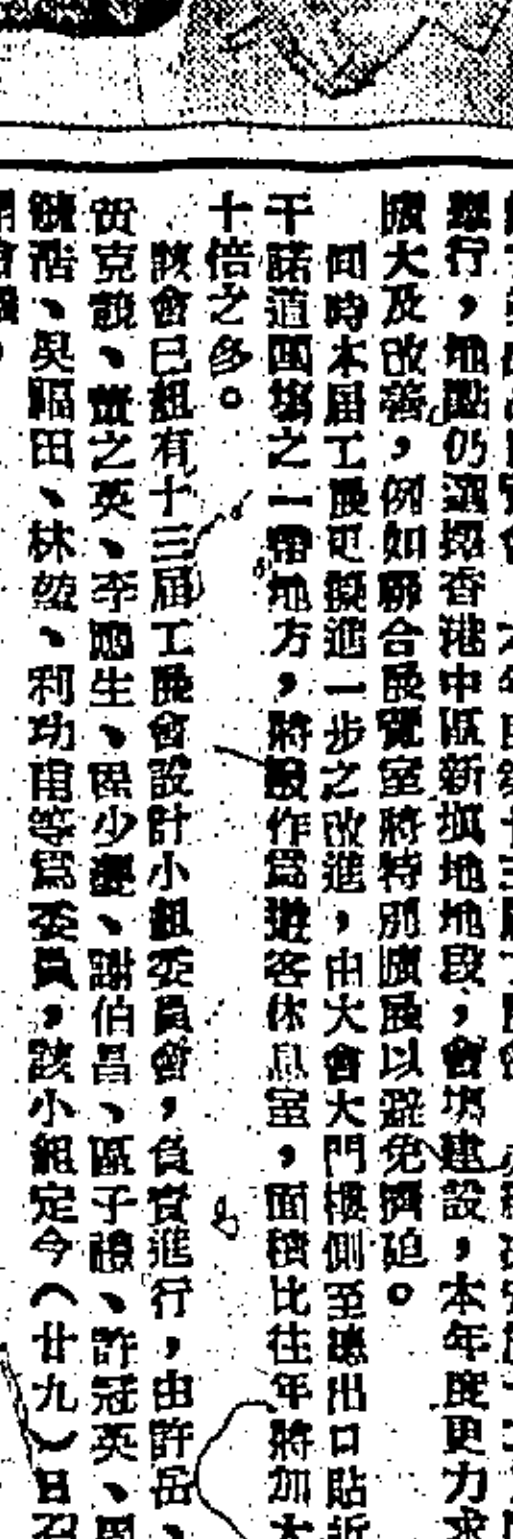 行，地點仍選擇香港中區新塡地地段，會塲建設，本年度更力求
擴大及改善，例如聯合展覽室將特別擴展以避免擠迫。
同時本屆工展更擬進一步之改進，由大會大門樓側至總出口貼近
干諾道圍墻之一帶地方，將設作爲遊客休息室，面積比往年將加大
十倍之多。
該會已組有十三屆工展會設計小組委員會，負責進行，由許岳、
黃克競、董之英、李應生、少、謝伯昌、區子禮、許冠英、周
浩、吳福田、林、利功甫等爲委員，該小組定今（廿九）日召